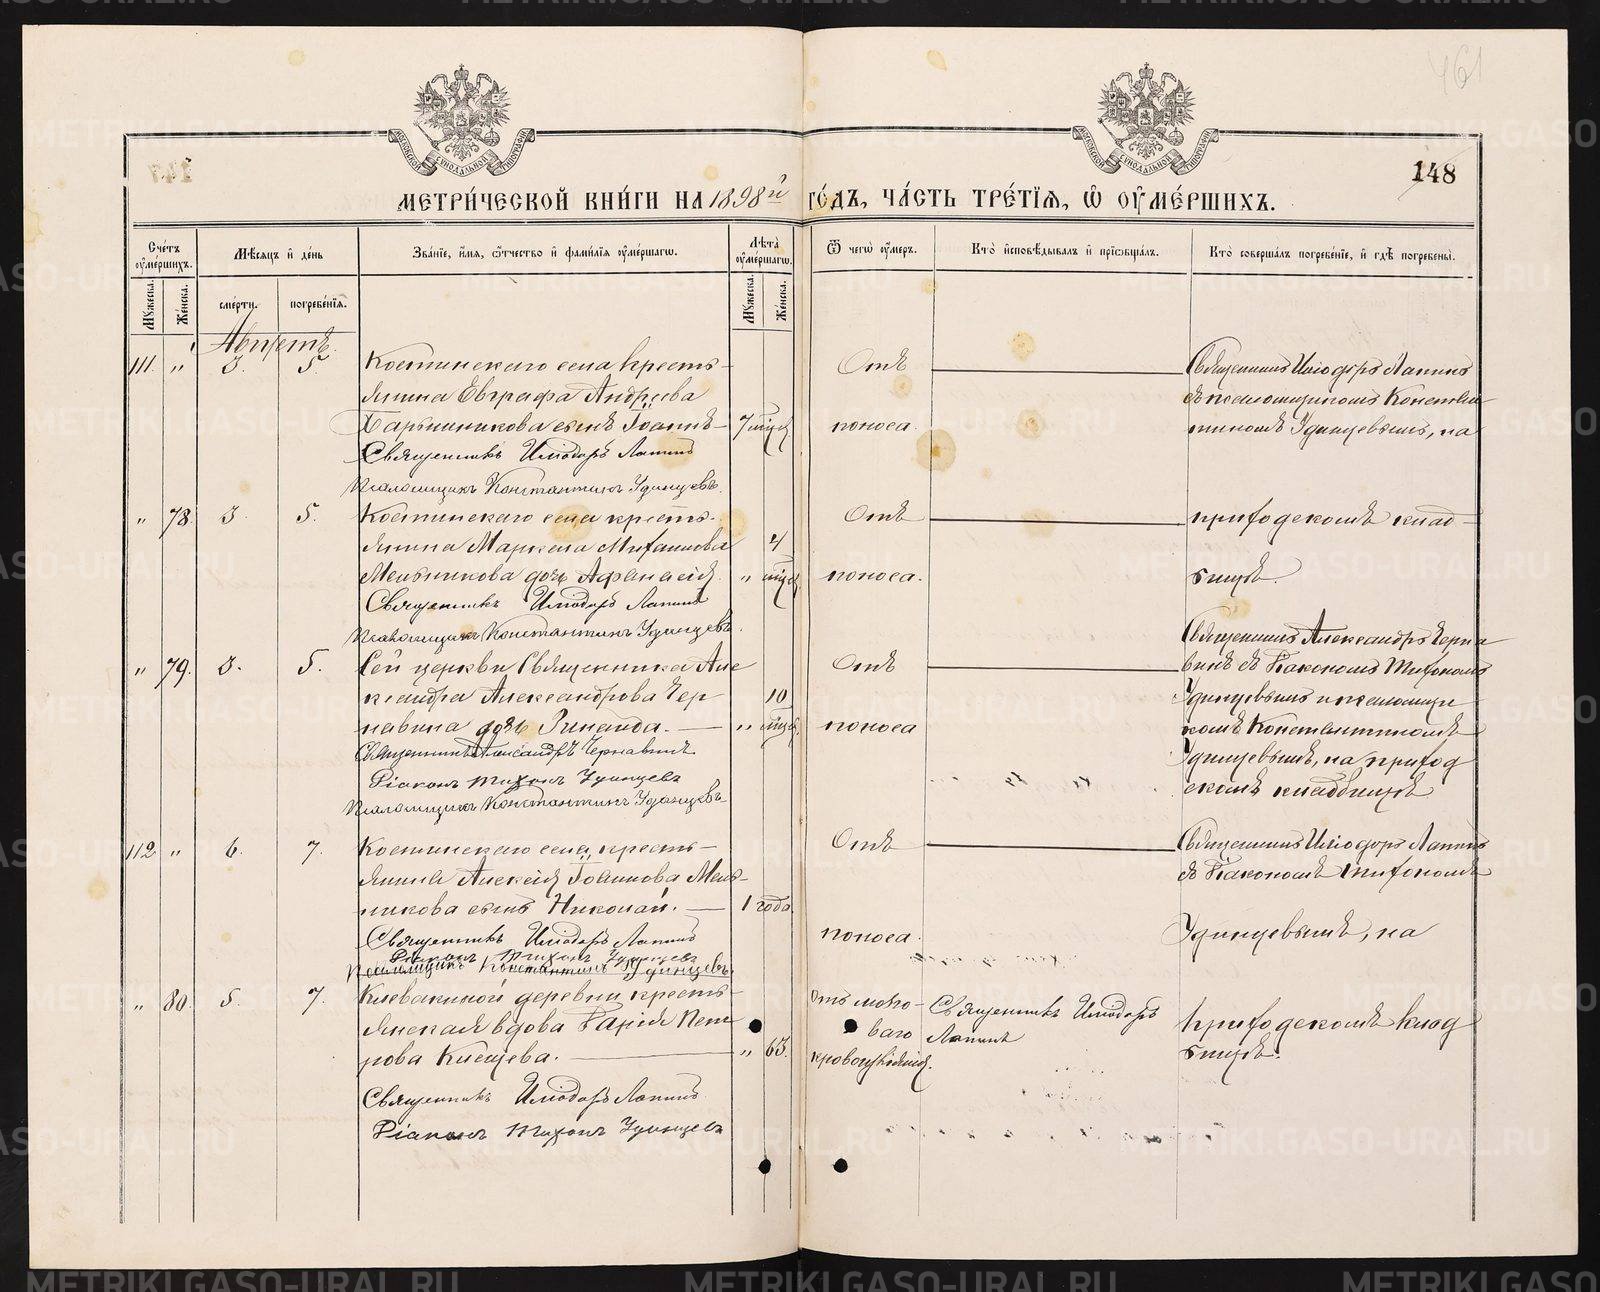 461
148
МЕТРИ́ЧЕСКОЙ КНИ́ГИ НА 1898й ГО́ДЪ, ЧА́СТЬ ТРЕ́ТЇѦ, Ѽ ОУ҆МЕ́РШИХЪ.
Сче́тъ оу҆ме́ршихъ.
Мꙋ́жеска. Же́нска.
Мѣ́сѧцъ и҆ де́нь
сме́рти. погребе́нїѧ.
Зва́нїе, и҆́мѧ, ѻ҆́тчество и҆ фами́лїѧ оу҆ме́ршагѡ.
Лѣ́та оу҆ме́ршагѡ.
Мꙋ́жеска. Же́нска.
Ѿ чегѡ̀ оу҆́меръ.
Кто̀ и҆сповѣ́дывалъ и҆ прїѡбща́лъ.
Кто̀ соверша́лъ погребе́нїе, и҆ гдѣ̀ погребены̀.
Августъ.
111. " 3. 5. Костинскаго села кресть-
янина Евграфа Андреева
Барышникова сынъ Іоаннъ – 7 мѣс.
Священникъ Иліодоръ Лапинъ
Псаломщикъ Константинъ Удинцевъ.
Отъ
поноса.
Священникъ Иліодоръ Лапинъ
съ псаломщикомъ Констан-
тиномъ Удинцевымъ, на
" 78. 3. 5. Костинскаго села кресть-
янина Маркела
Мельникова дочь Афанасія. " 4 мѣс.
Священникъ Иліодоръ Лапинъ
Псаломщикъ Константинъ Удинцевъ
Отъ
поноса.
приходскомъ клад-
бищѣ.
" 79. 3. 5. Сей церкви Священника Але
ксандра Александрова Чер
навина дочь Зинаида. — " 10 мѣс.
Священникъ Александръ Чернавинъ
Діаконъ Тихонъ Удинцевъ
Псаломщикъ Константинъ Удинцевъ
Отъ
поноса
Священникъ Александръ Черна
винъ съ Діакономъ Тихономъ
Удинцевымъ и псаломщи
комъ Константиномъ
Удинцевымъ, на приход
скомъ кладбищѣ
112 " 6. 7. Костинскаго села кресть-
янина Алексія Іоаннова Мель-
никова сынъ Николай. — 1 года.
Священникъ Иліодоръ Лапинъ
Діаконъ Тихонъ Удинцевъ
Псаломщикъ Константинъ Удинцевъ.
Отъ
поноса.
Священникъ Иліодоръ Лапинъ
съ Діакономъ Тихономъ
Удинцевымъ, на
" 80. 5. 7. деревни кресть-
янская вдова Дарія Пет
рова — " 63.
Священникъ Иліодоръ Лапинъ.
Діаконъ Тихонъ Удинцевъ
Отъ
Священникъ Иліодоръ
Лапинъ
приходскомъ клад
бищѣ.
METRIKI.GASO-URAL.RU